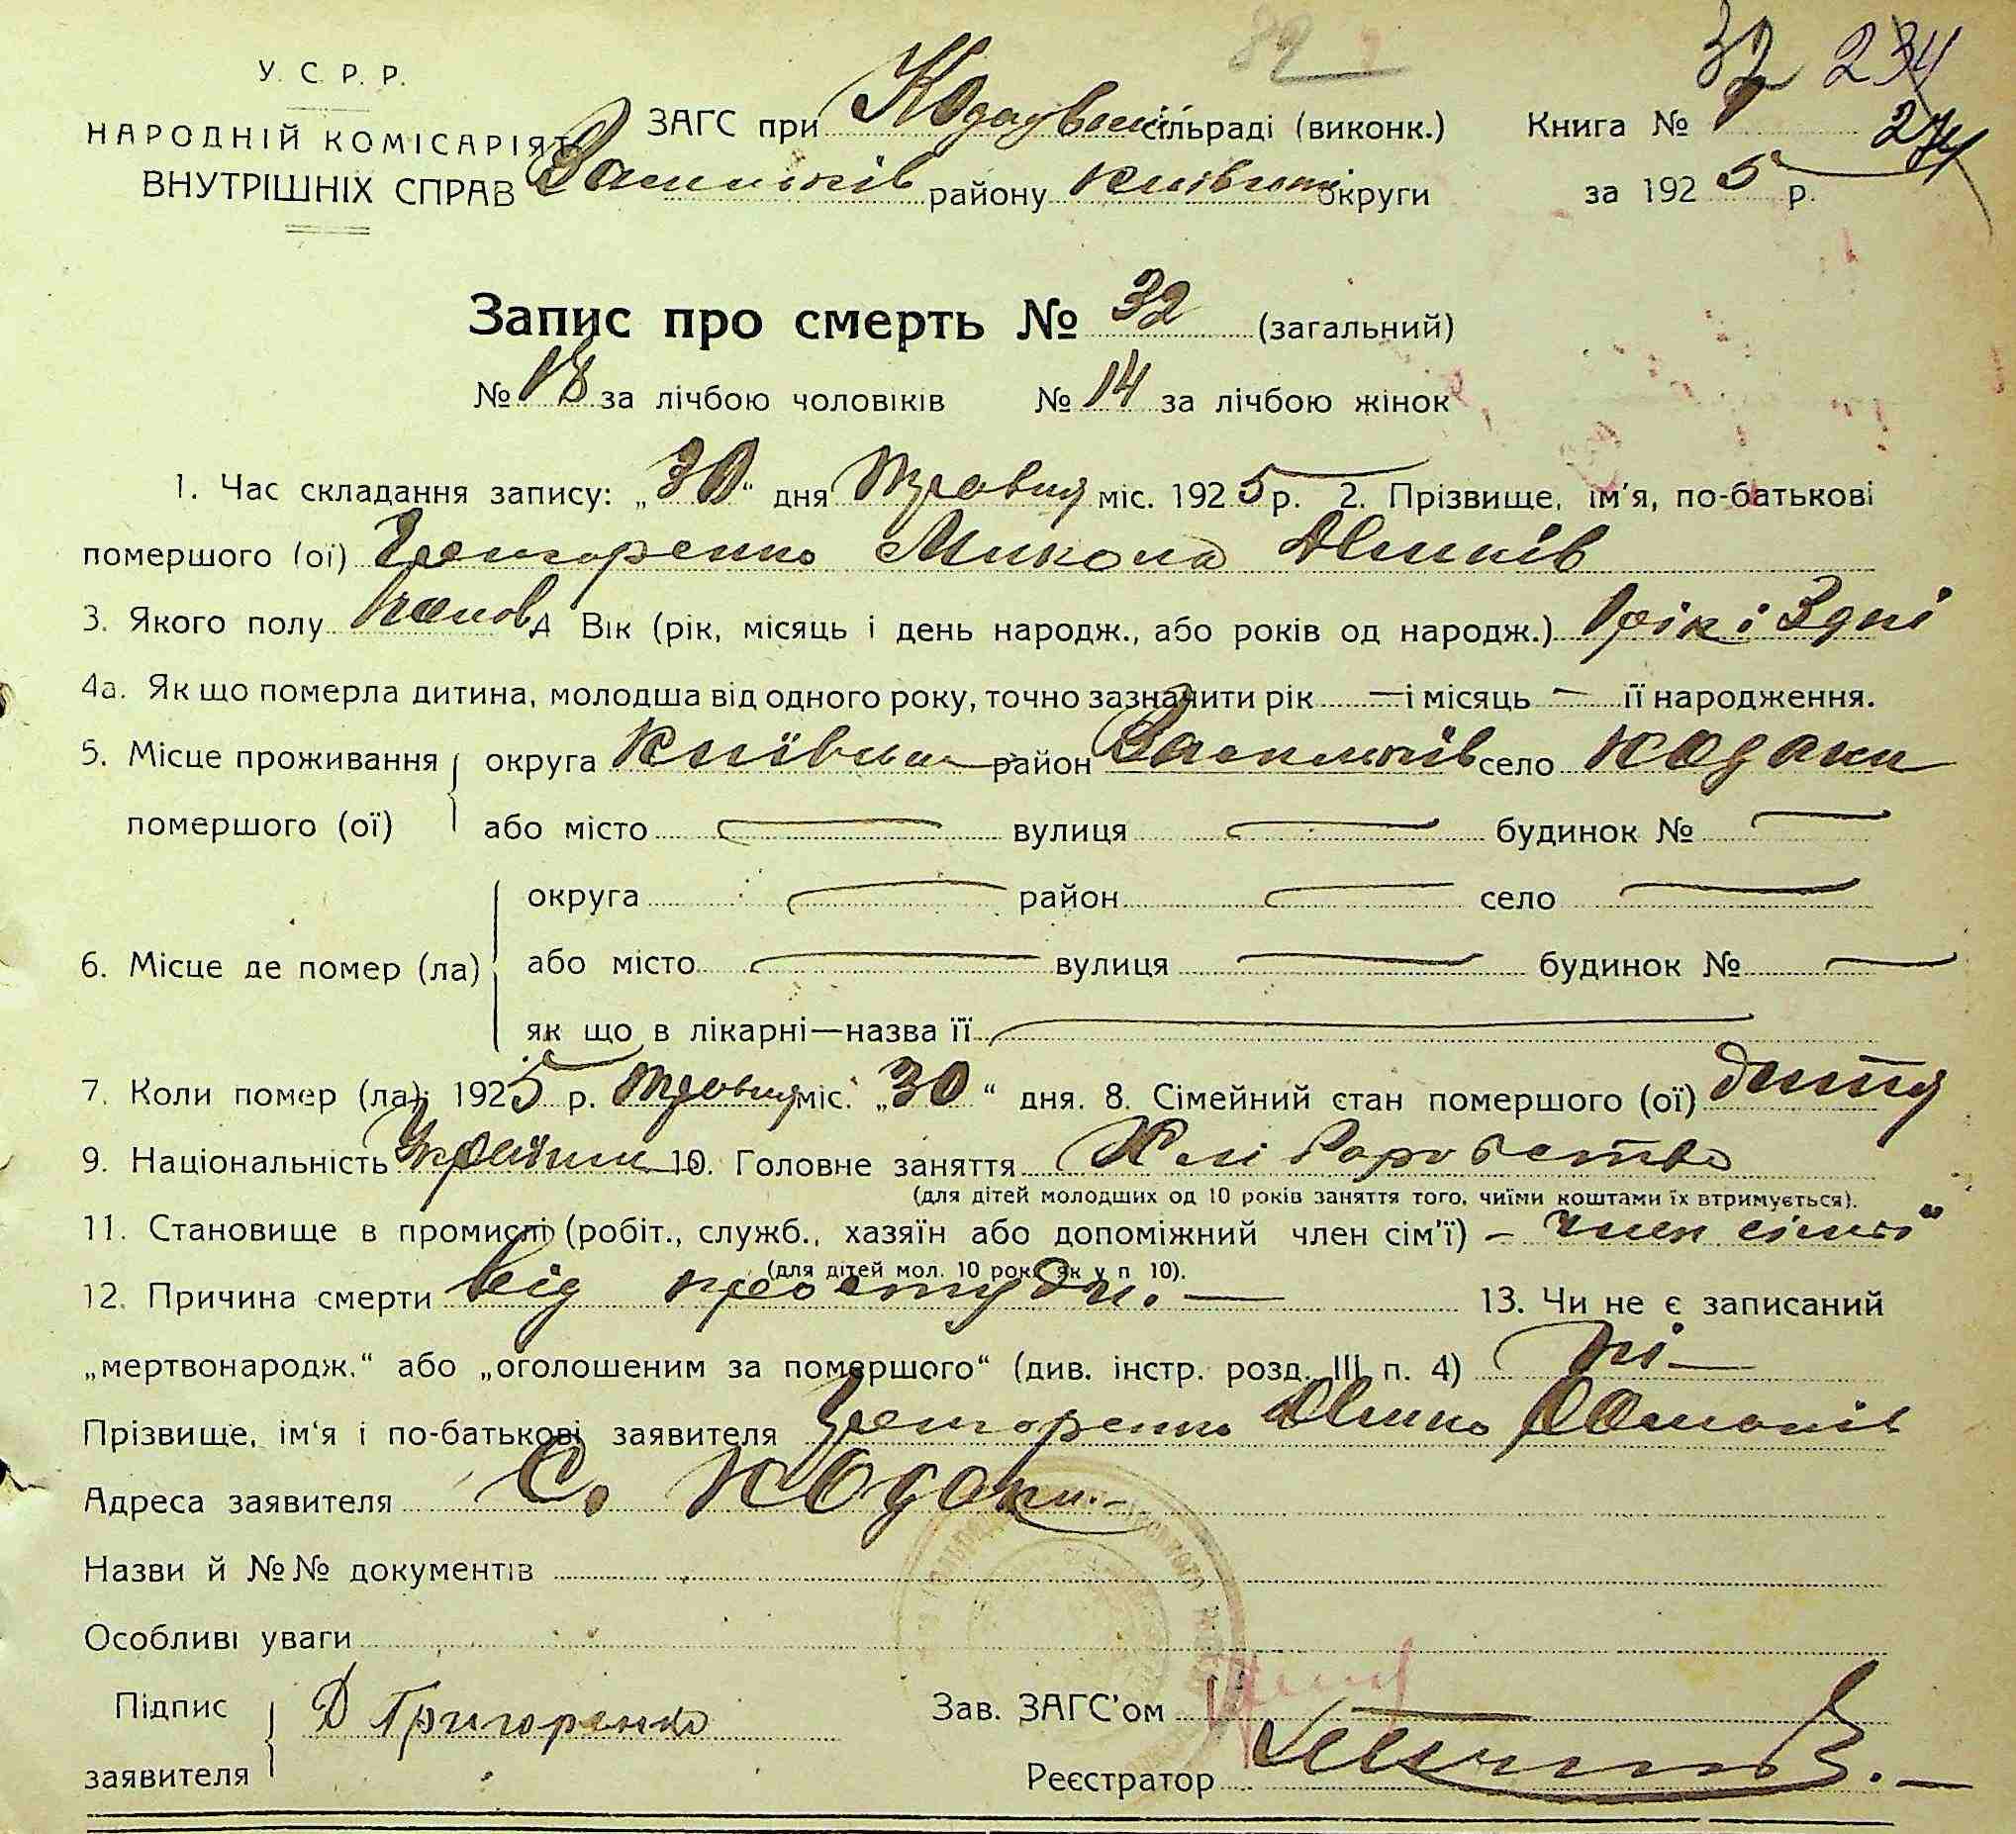 У. С. Р. Р.
НАРОДНІЙ КОМІСАРІЯТ
ВНУТРІШНІХ СПРАВ
ЗАГС при Кодацькій сільраді (виконк.)
Васильків району Київської округи
Книга № 1
за 1925 р.
32 234
274
Запис про смерть № 32 (загальний)
№ 18 за лічбою чоловіків № 14 за лічбою жінок
1. Час складання запису: „30“ дня Травня міс. 1925 р. 2. Прізвище, ім'я, по-батькові
помершого (ої) Григоренко Микола Дмитрів
3. Якого полу Чолов. 4 Вік (рік, місяць і день народж., або років од народж.) 1 рік і 3 дні
4а. Як що померла дитина, молодша від одного року, точно зазначити рік — і місяць — її народження.
5. Місце проживання округа Київська район Васильків село Кодаки
помершого (ої) або місто — вулиця — будинок № —
округа — район — село —
6. Місце де помер (ла) або місто — вулиця — будинок № —
як що в лікарні—назва її —
7. Коли помер (ла): 1925 р. Травня міс. „30“ дня. 8. Сімейний стан помершого (ої) дитя
9. Національність Україн. 10. Головне заняття Хліборобство
(для дітей молодших од 10 років заняття того, чиїми коштами їх втримується).
11. Становище в промислі (робіт., служб., хазяїн або допоміжний член сім'ї) – член сім'ї
(для дітей мол. 10 рок. як у п 10).
12. Причина смерти від простуди. — 13. Чи не є записаний
„мертвонародж.“ або „оголошеним за помершого“ (див. інстр. розд. III п. 4) ні —
Прізвище, ім'я і по-батькові заявителя Григоренко Дмитро
Адреса заявителя С. Кодаки. –
Назви й №№ документів
Особливі уваги
Підпис заявителя Д Григоренко
Зав. ЗАГС'ом
Реєстратор